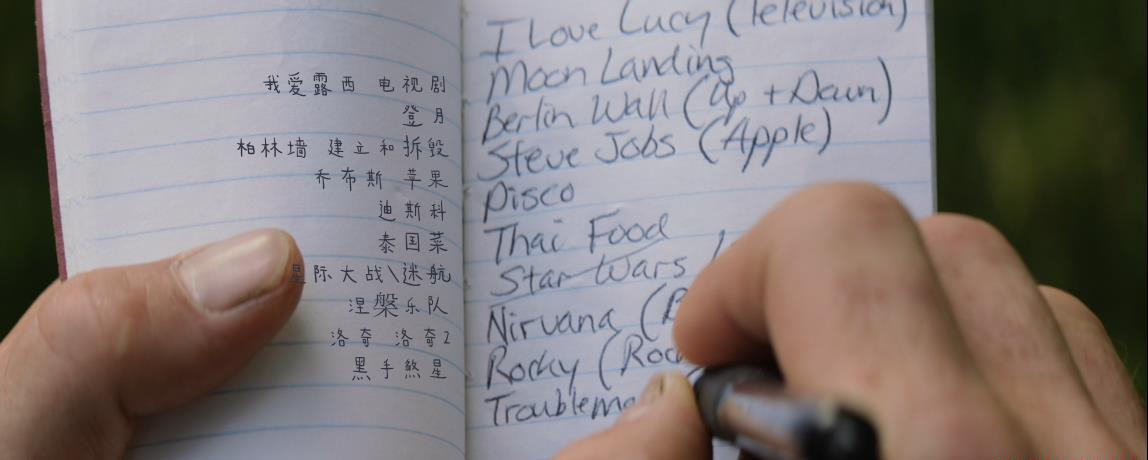 我爱露西 电视剧
登月
柏林墙 建立和拆毁
乔布斯 苹果
迪斯科
泰国菜
星际大战\迷航
涅槃乐队
洛奇 洛奇2
黑手煞星
I Love Lucy (Television)
Moon Landing
Berlin Wall (Up + Down)
Steve Jobs (Apple)
Disco
Thai Food
Star Wars
Nirvana
Rocky